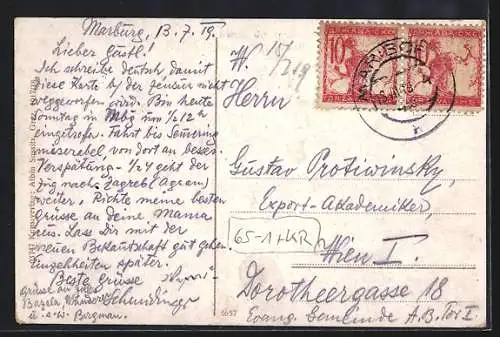 Marburg, 13.7.19.
Lieber Gustl!
Ich schreibe deutsch damit
diese Karte b/ der Zensur nicht
weggeworfen wird. Bin heute
Sonntag in Mbg um 1/2 12 h
eingetroffen. Fahrt bis Semering
miserabel, von dort an besser.
Verspätung - 1/2 4 geht der
Zug nach Zagreb (Agram)
weiter. Richte meine besten
Grüsse an deine Mama
aus. Lass Dir mit der
neuen Bekanntschaft gut gehen.
Einzelheiten später.
Beste Grüsse
Grüsse an
u. s. w. Bergman.
W. 15/7 19
Herrn
Gustav Protiwinsky,
Export-Akademiker,
65-1+KR
Wien I.
Dorotheergasse 18
Evang. Gemeinde A.B. Tür 1
6657
10
MARIBOR